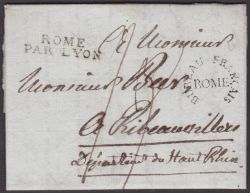 ROME
PAR LYON
à Monsieur
BUREAU FRANÇAIS
ROME
Monsieur Beer
à Ribeauvillers
Département du Haut Rhin